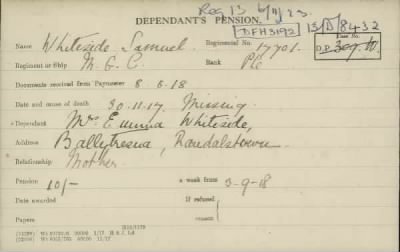 Reg 13 6/11/23.
DEPENDANT'S PENSION.
DFH3192 13/D/8432
Name Whiteside Samuel. Regimental No. 17701.
Case No.
Regiment or Ship M. G. C. Rank Pte D.P.
Documents received from Paymaster 8.6.18
Date and cause of death 30.11.17. Missing.
Dependant Mrs Emma Whiteside,
Address Ballytresna, Randalstown.
Relationship Mother
Pension 10/- a week from 3-9-18
Date awarded If refused
Papers reason